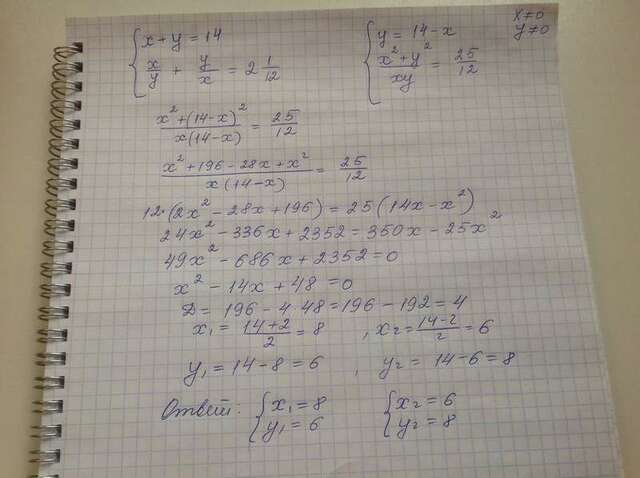 x + y = 14
x/y + y/x = 2 1/12
y = 14 - x
(x² + y²)/xy = 25/12
x ≠ 0
y ≠ 0
(x² + (14-x)²)/(x(14-x)) = 25/12
(x² + 196 - 28x + x²)/(x(14-x)) = 25/12
12·(2x² - 28x + 196) = 25(14x - x²)
24x² - 336x + 2352 = 350x - 25x²
49x² - 686x + 2352 = 0
x² - 14x + 48 = 0
D = 196 - 4·48 = 196 - 192 = 4
x₁ = (14+2)/2 = 8 , x₂ = (14-2)/2 = 6
y₁ = 14 - 8 = 6 , y₂ = 14 - 6 = 8
Ответ: { x₁ = 8 { x₂ = 6
y₁ = 6 y₂ = 8